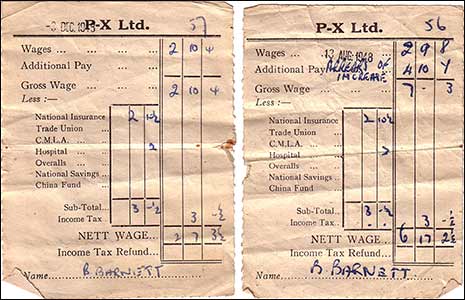 DEC. 1948 57
P-X Ltd.
Wages ... ... ... 2 10 4
Additional Pay ... ...
Gross Wage ... ... 2 10 4
Less :—
National Insurance 2 10½
Trade Union ...
C.M.L.A. ...
Hospital ... 2
Overalls ...
National Savings ...
China Fund ...
Sub-Total... 3 -½ 3 -½
Income Tax ...
NETT WAGE ... 2 7 3½
Income Tax Refund...
Name B BARNETT
56
P-X Ltd.
Wages ... 13 AUG 1948 2 9 8
Additional Pay ARREARS OF 4 10 7
INCREASE
Gross Wage ... 7 - 3
Less :—
National Insurance 2 10½
Trade Union ...
C.M.L.A. ...
Hospital ... 2
Overalls ...
National Savings ...
China Fund ...
Sub-Total... 3 -½
Income Tax ... - - 3 -½
NETT WAGE... 6 17 2½
Income Tax Refund...
Name B BARNETT